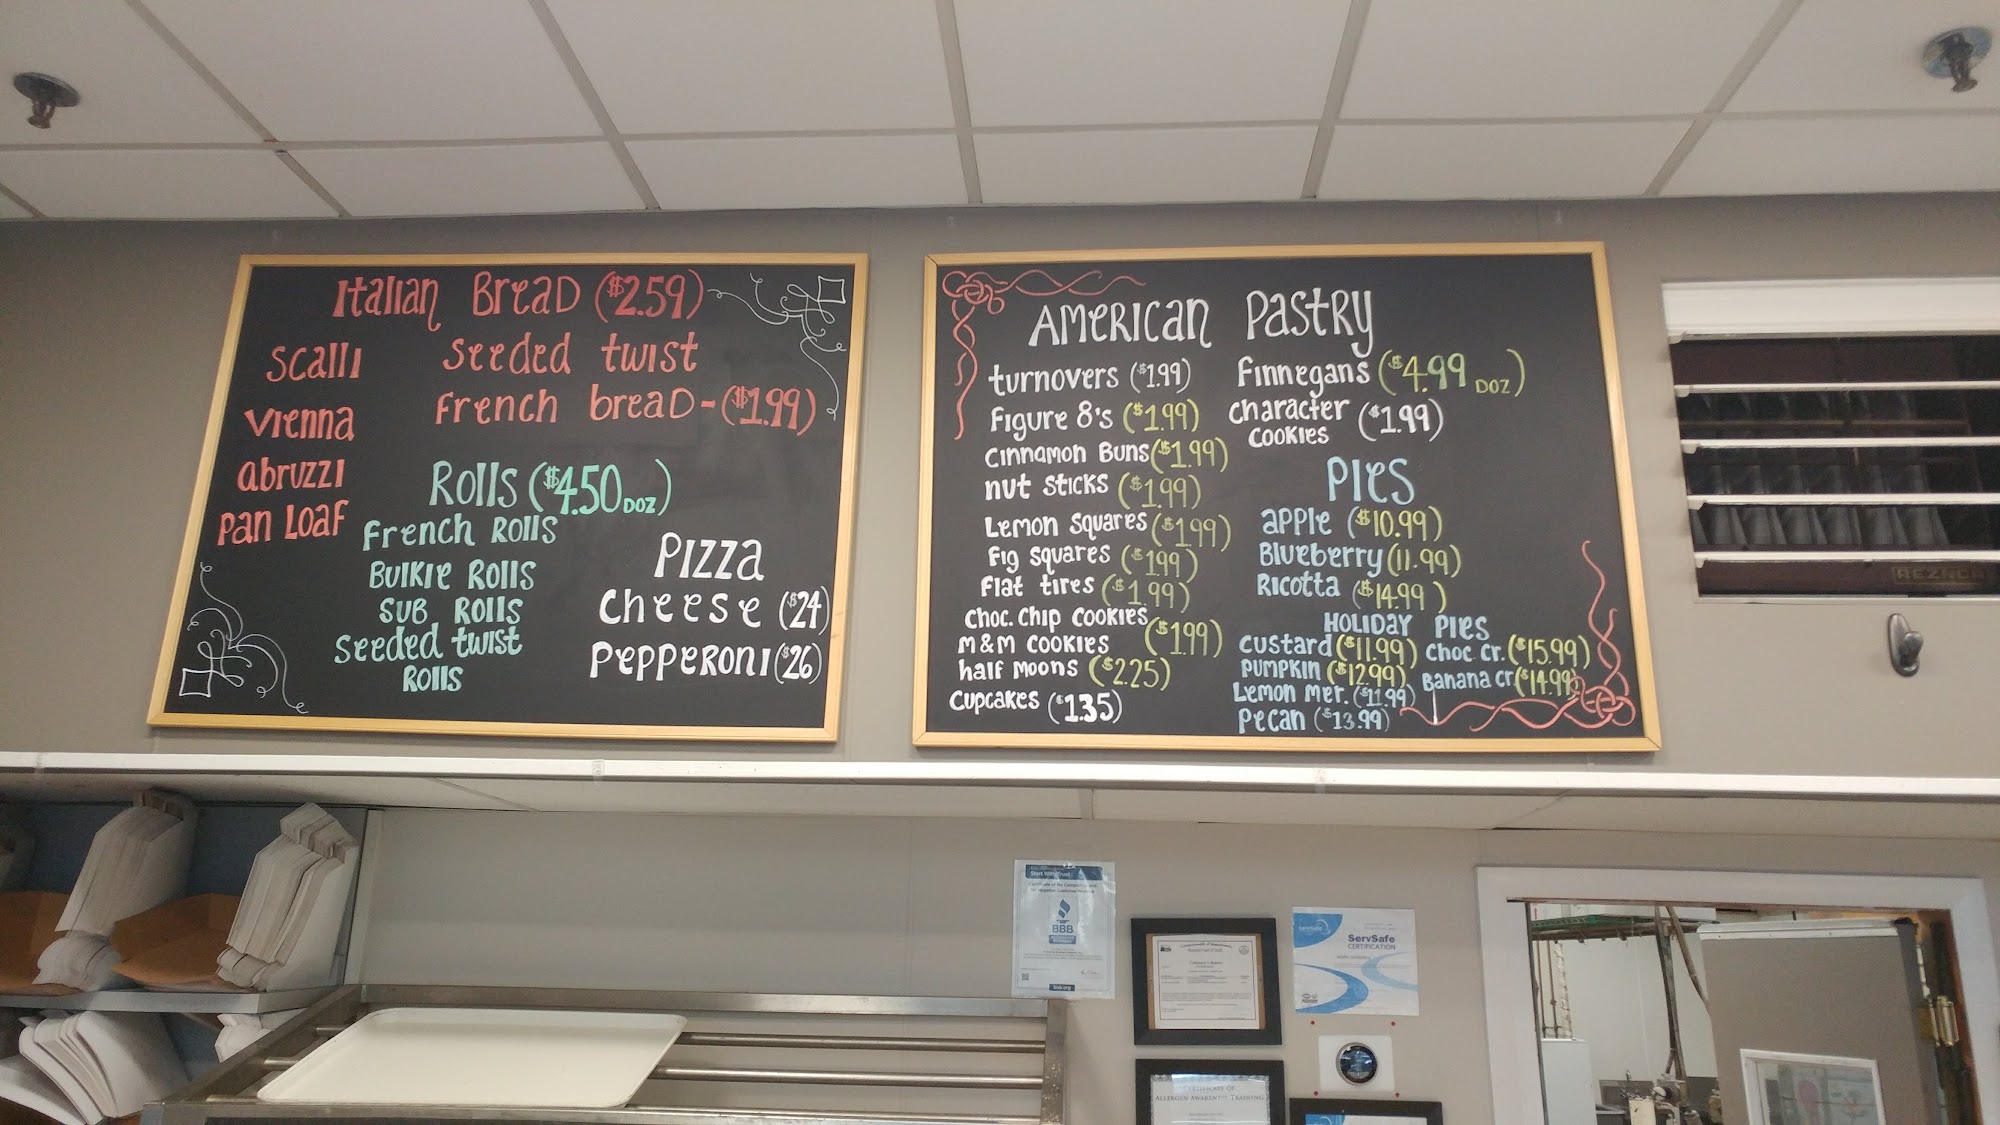 Italian Bread ($2.59)
Scalli
Vienna
Abruzzi
Pan Loaf
Seeded twist
French bread - ($1.99)
Rolls ($4.50 DOZ)
French Rolls
Bulkie Rolls
Sub Rolls
Seeded twist
Rolls
Pizza
Cheese ($24)
Pepperoni ($26)
American Pastry
turnovers ($1.99)
Figure 8's ($1.99)
Cinnamon Buns ($1.99)
nut sticks ($1.99)
Lemon Squares ($1.99)
Fig Squares ($1.99)
Flat tires ($1.99)
Choc. Chip Cookies
M&M Cookies ($1.99)
half Moons ($2.25)
Cupcakes ($1.35)
Finnegans ($4.99 DOZ)
Character
Cookies ($1.99)
Pies
Apple ($10.99)
Blueberry (11.99)
Ricotta ($14.99)
Holiday Pies
Custard ($11.99)
Pumpkin ($12.99)
Lemon Mer. ($11.99)
Pecan ($13.99)
Choc Cr. ($15.99)
Banana Cr ($14.99)
REZNOR
Start With Trust
BBB
bbb.org
ServSafe
ServSafe
CERTIFICATION
CERTIFICATE OF
ALLERGEN AWARENESS TRAINING